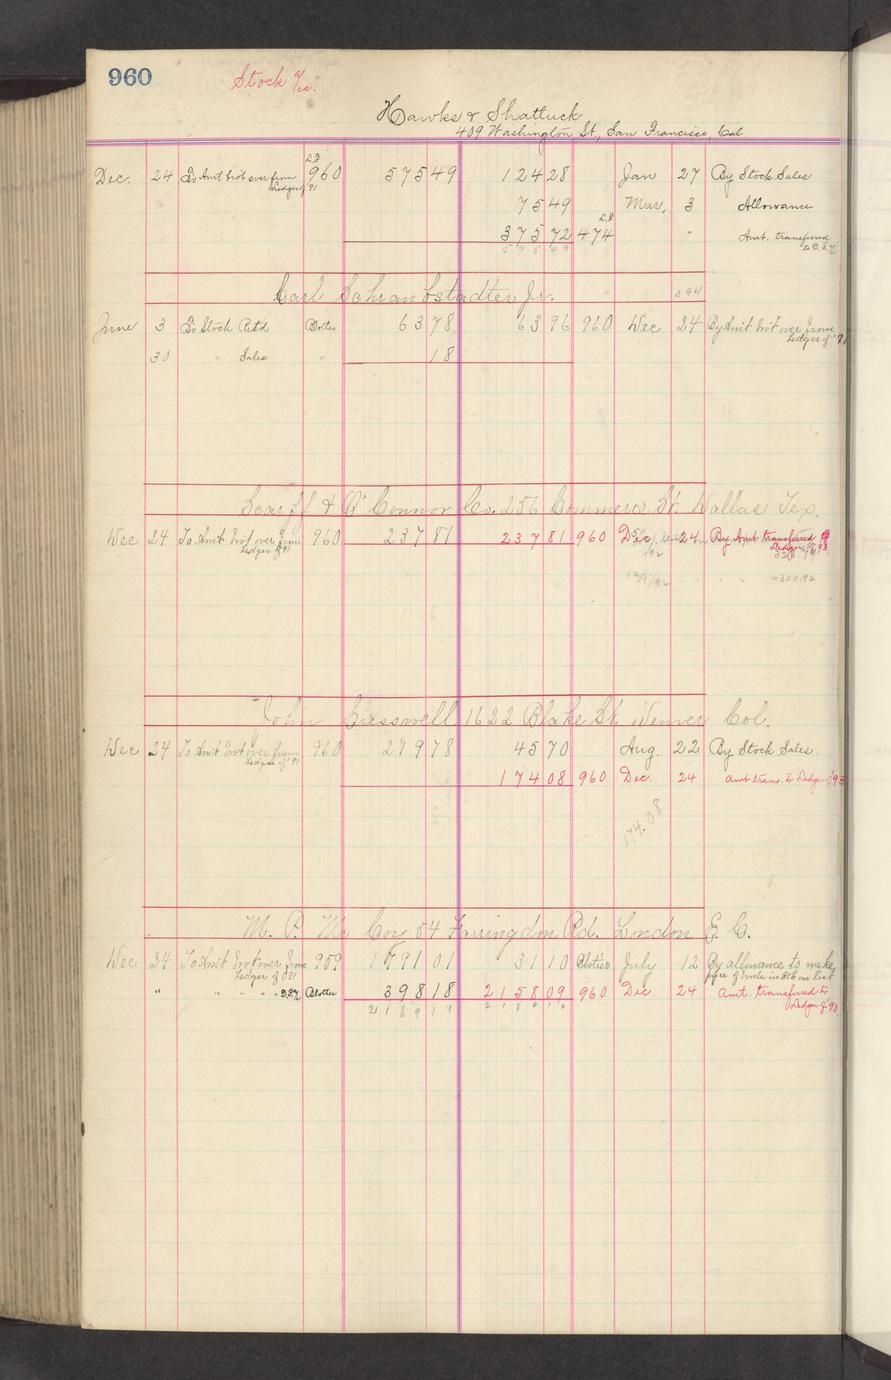 960 Stock a/c.
Hawks & Shattuck
409 Washington St., San Francisco, Cal.
L.F. L.F.
Dec. 24 To Amt bro't over from 960 575 49 124 28 Jan 27 By Stock Sales
Ledger of '91
75 49 Mar. 3 Allowance
375 72 474 " Amt. transferred
575 49
Carl Schraubstadter Jr. 594
June 3 To Stock Retd Blotter 63 78 63 96 960 Dec 24 By Amt bro't over from
Ledger of '91
30 " Sales " 18
Scarff & O'Connor Co. 256 Commerce St. Dallas Tex.
Dec 24 To Amt bro't over from 960 237 81 237 81 960 Dec 24 By Amt transferred
Ledger of '91 Ledger of '93
12/1/92 " 300.92
John Cresswell 1622 Blake St. Denver Col.
Dec 24 To Amt bro't over from 960 219 78 45 70 Aug. 22 By Stock Sales.
Ledger of '91
174 08 960 Dec. 24 Amt trans. to Ledger of '93
174.08
M. P. Mc Coy 54 Farringdon Rd. London E. C.
Dec 24 To Amt bro't over from 959 1791 01 31 10 Blotter July 12 By allowance to make
Ledger of '91 price of in list
" " " " " Blotter 398 18 2158 09 960 Dec. 24 Amt. transferred to
Ledger of '93
2189 19 2189 19